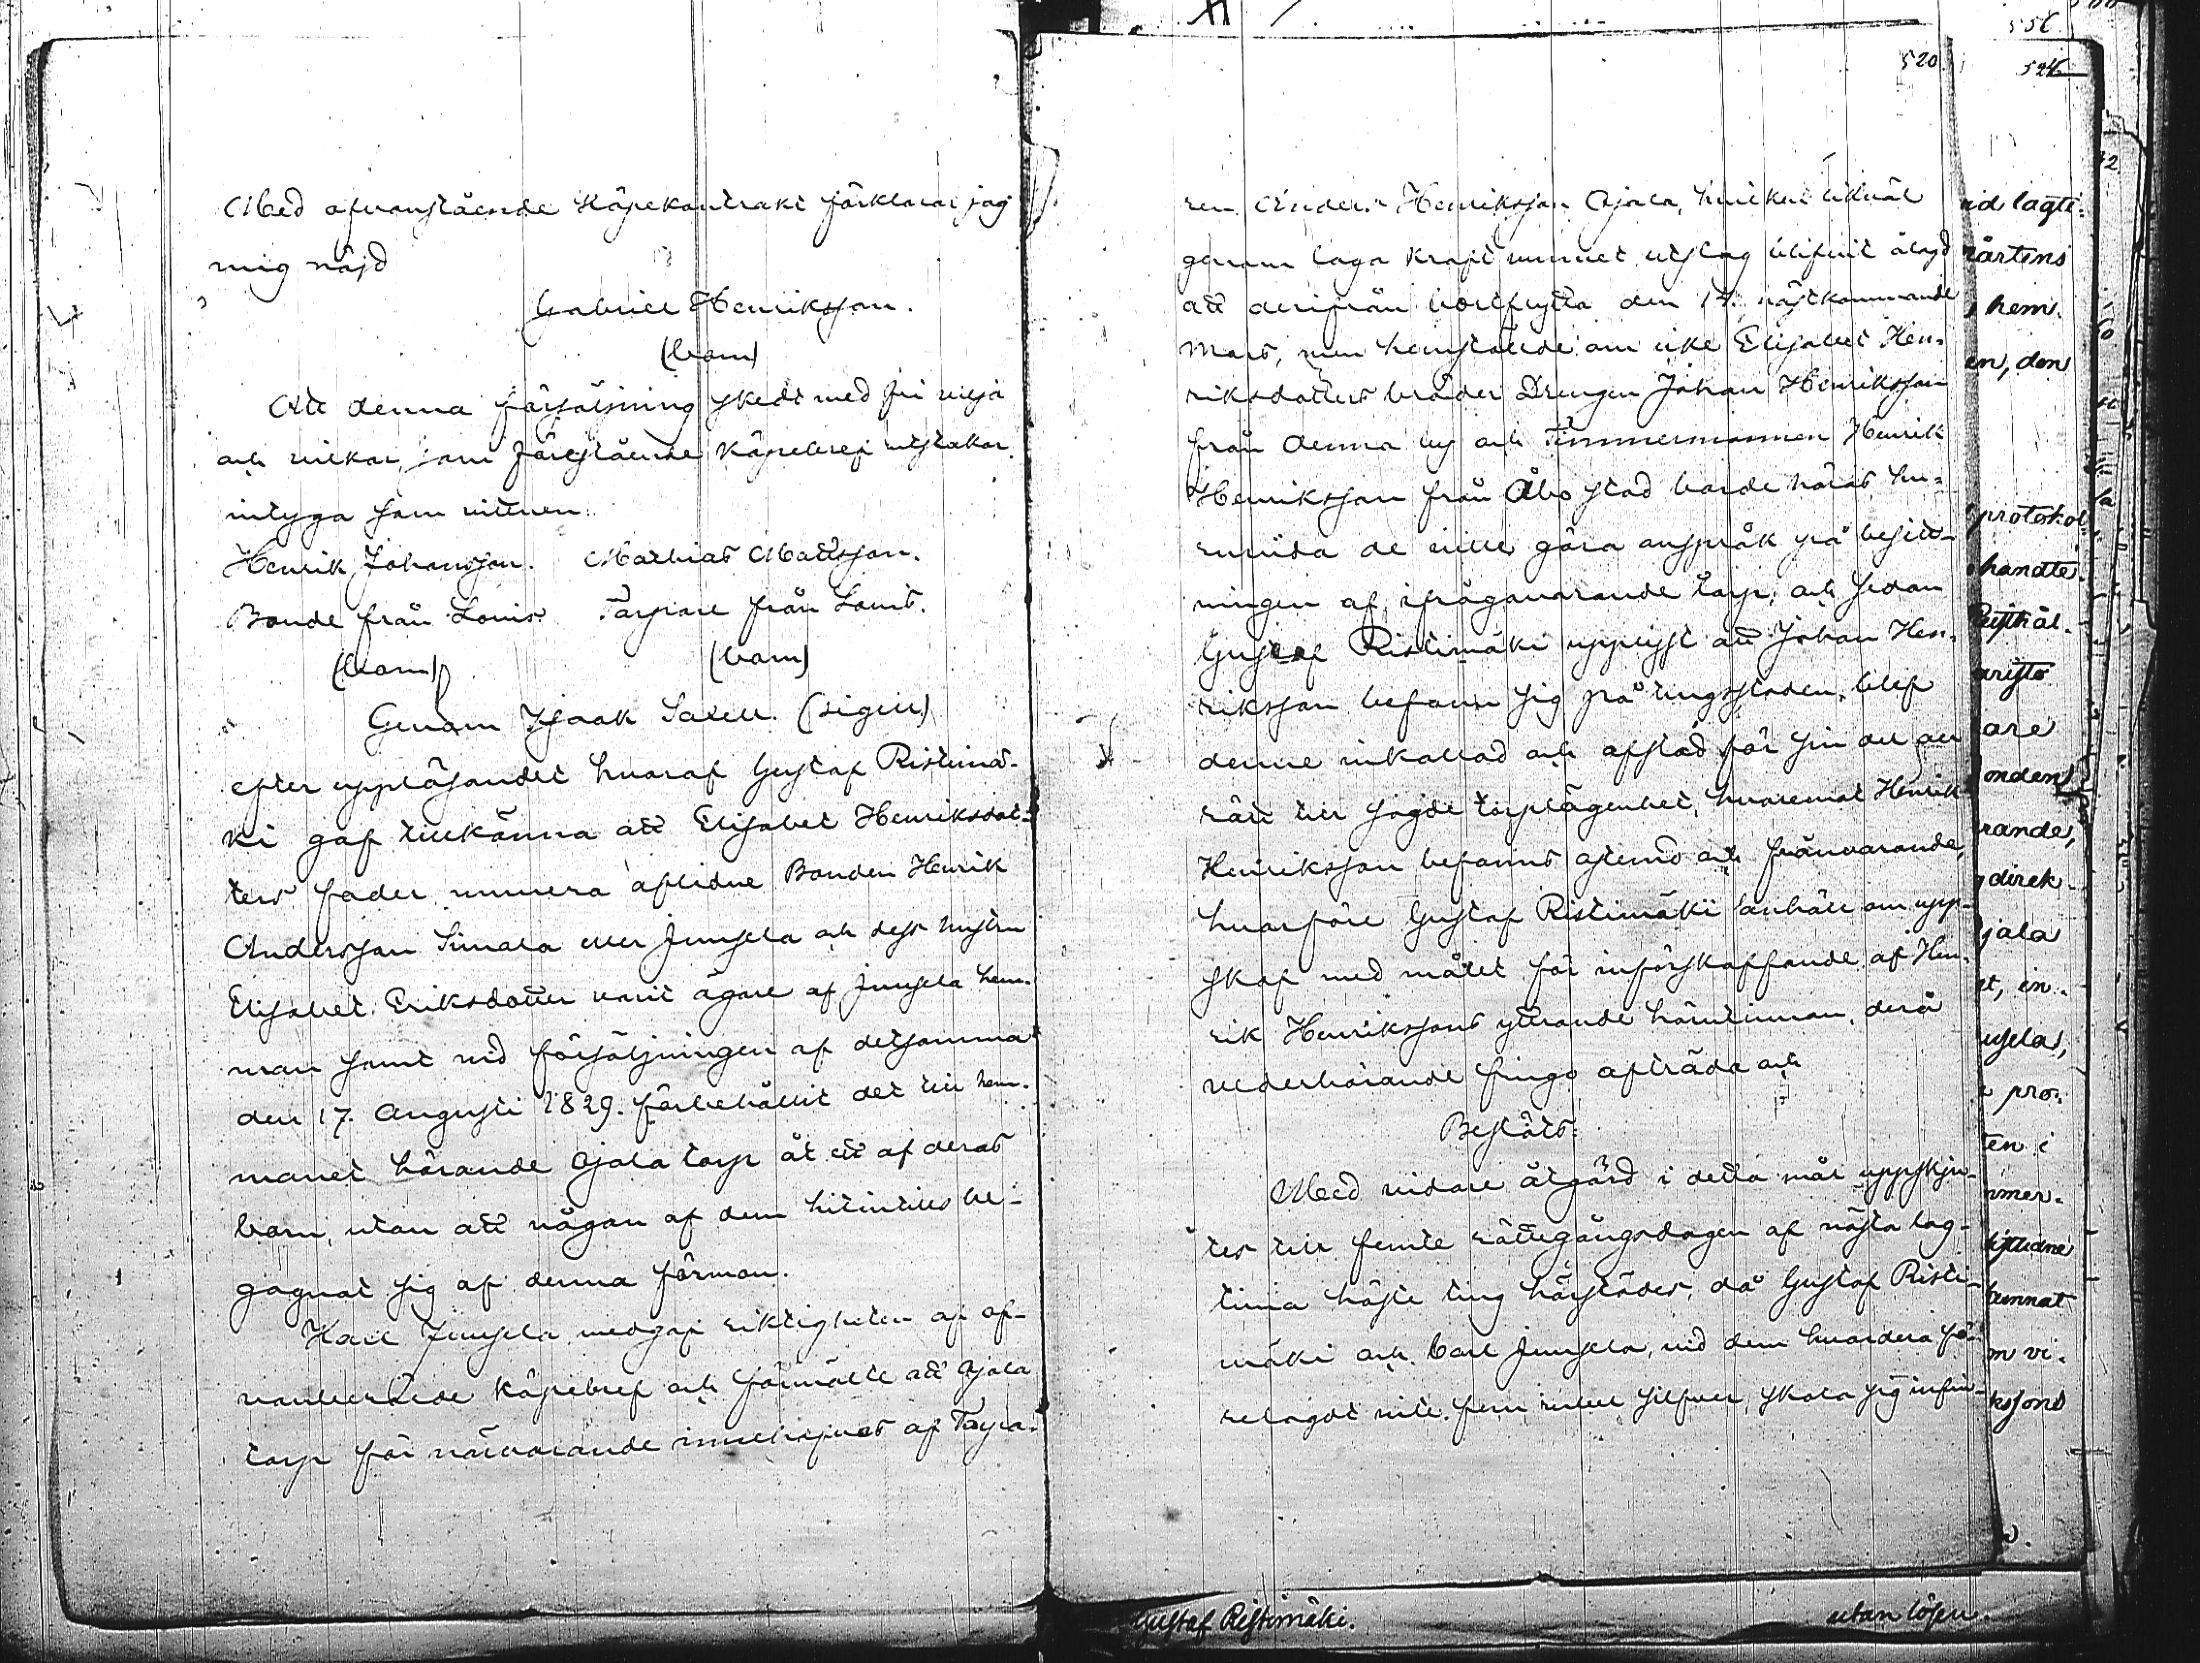 Med ofvanstående Köpekontrakt förklarar jag
mig nöjd
Gabriel Henriksson.
(bom)
Att denna försäljning skedt med fri vilja
och vilkor, som förestående Köpebref utstakar
intyga som vittnen.
Henrik Johansson. Mathias Mattsson.
Bonde från Louis. Torpare från Louis.
(bom) (bom)
Genom Isaak Saxell. (sigill)
efter uppläsandet hvaraf Gustaf Ristimä-
ki gaf tillkänna att Elisabet Henriksdot-
ters fader numera aflidne Bonden Henrik
Andersson Simala eller Junsela och dess hustru
Elisabet Eriksdotter varit ägare af Junsela hem-
man samt vid försäljningen af detsamma
den 17. Augusti 1829. förbehållit det till hem-
manet hörande Ojala torp åt ett af deras
barn, utan att någon af dem hitintills be-
gagnat sig af denna förmon.
Karl Junsela medgaf riktigheten af of-
vanberörde köpebref och förmälte att Ojala
torp för närvarande innehafves af Torpa-
520.
ren Anders Henriksson Ojala, hvilken likväl
genom laga kraft vunnet utslag blifvit ålagd
att derifrån bortflytta den 14. nästkommande
Mars, men hemstälde om icke Elisabet Hen-
riksdotters bröder Drengen Johan Henriksson
från denna by och Timmermannen Henrik
Henriksson från Åbo stad borde höras hu-
ruvida de ville göra anspråk på besitt-
ningen af ifrågavarande torp, och sedan
Gustaf Ristimäki upplyst att Johan Hen-
riksson befann sig på tingsstaden, blef
denne inkallad och afstod för sin del all
rätt till sagde torplägenhet, hvaremot Henrik
Henriksson befanns ostemd och frånvarande,
hvarföre Gustaf Ristimäki anhöll om upp-
skof med målet för införskaffande af Hen-
rik Henrikssons yttrande härutinnan, derå
vederbörande fingo afträda och
Beslöts:
Med vidare åtgärd i detta mål uppskju-
tes till femte rättegångsdagen af nästa lag-
tima höste ting härstädes, då Gustaf Risti-
mäki och Carl Junsela, vid dem hvardera fö-
relagdt vite fem rubel silfver, skola sig infin-
Gustaf Ristimäki. utan lösen.
524
vid lagti-
mårtens
hem-
en, den
protokol
handte
are
onden
rande,
direk-
jala
t, in-
usela,
pro-
ten i
mmer-
kunnat
m vi-
kssons